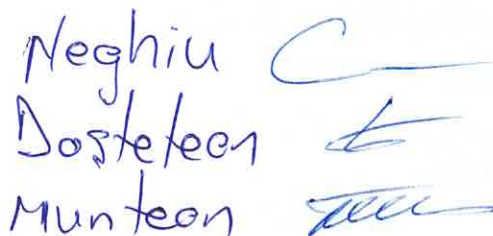 Neghiu
Dosteteon
Munteon